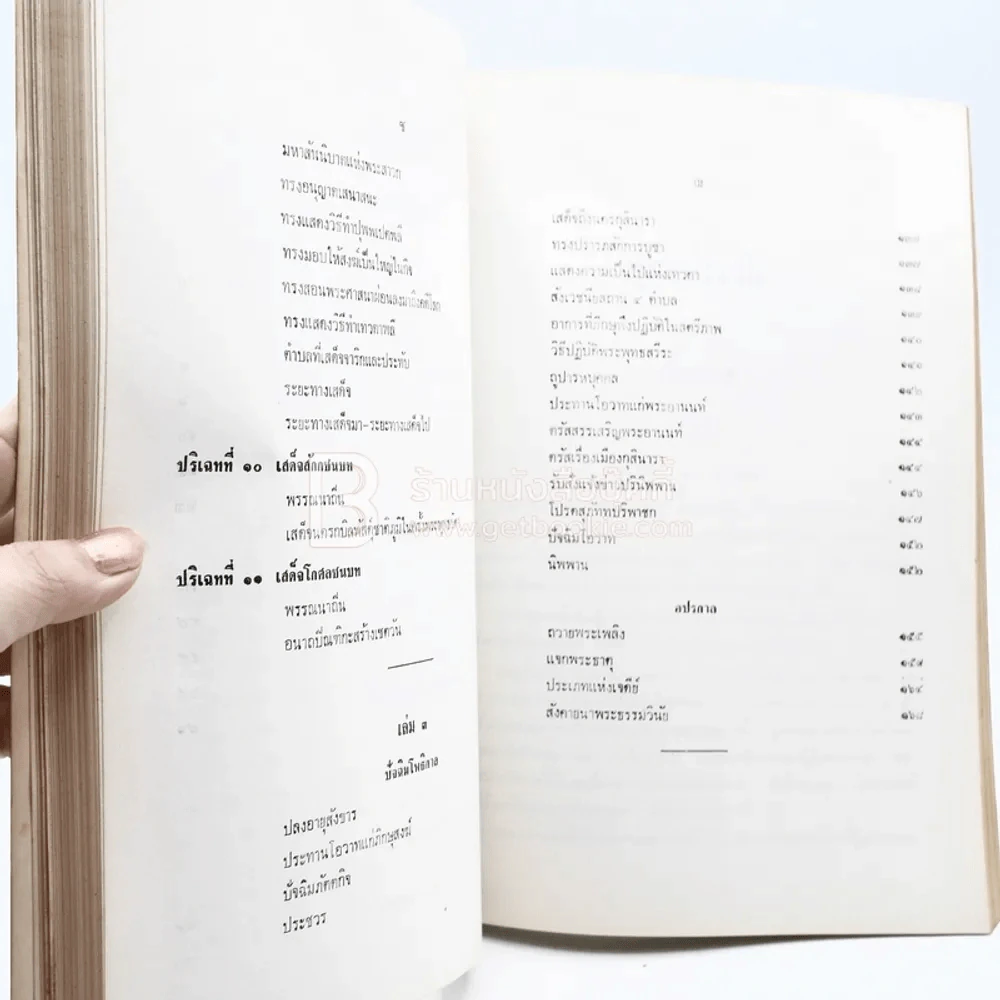 ช
มหาสันนิบาตแห่งพระสาวก
ทรงอนุญาตเสนาสนะ
ทรงแสดงวิธีทำปุพพเปตพลี
ทรงมอบให้สงฆ์เป็นใหญ่ในกิจ
ทรงสอนพระศาสนาผ่อนลงมาถึงคติโลก
ทรงแสดงวิธีทำเทวตาพลี
ตำบลที่เสด็จจาริกและประทับ
ระยะทางเสด็จ
ระยะทางเสด็จมา-ระยะทางเสด็จไป
ปริเฉทที่ ๑๐ เสด็จสักกชนบท
พรรณนาถิ่น
เสด็จนครกบิลพัสดุ์ชาติภูมิ
ปริเฉทที่ ๑๑ เสด็จโกศลชนบท
พรรณนาถิ่น
อนาถบิณฑิกะสร้างเชตวัน
เล่ม ๓
ปัจฉิมโพธิกาล
ปลงอายุสังขาร
ประทานโอวาทแก่ภิกษุสงฆ์
ปัจฉิมภัตตกิจ
ประชวร
เสด็จถึงนครกุสินารา
ทรงปรารภสักการบูชา ๑๓๗
แสดงความเป็นไปแห่งเทวดา ๑๓๗
สังเวชนียสถาน ๔ ตำบล ๑๓๘
อาการที่ภิกษุพึงปฏิบัติในสตรีภาพ
วิธีปฏิบัติพระพุทธสรีระ ๑๔๐
ถูปารหบุคคล ๑๔๑
ประทานโอวาทแก่พระอานนท์ ๑๔๒
ตรัสสรรเสริญพระอานนท์ ๑๔๓
ตรัสเรื่องเมืองกุสินารา ๑๔๔
รับสั่งแจ้งข่าวปรินิพพาน
โปรดสุภัททปริพาชก ๑๔๖
ปัจฉิมโอวาท ๑๔๗
นิพพาน ๑๕๒
๑๕๒
อปรกาล
ถวายพระเพลิง ๑๕๕
แจกพระธาตุ ๑๕๙
ประเภทแห่งเจดีย์ ๑๖๔
สังคายนาพระธรรมวินัย ๑๖๘
ร้านหนังสือบุ๊คกี้
www.getbookie.com